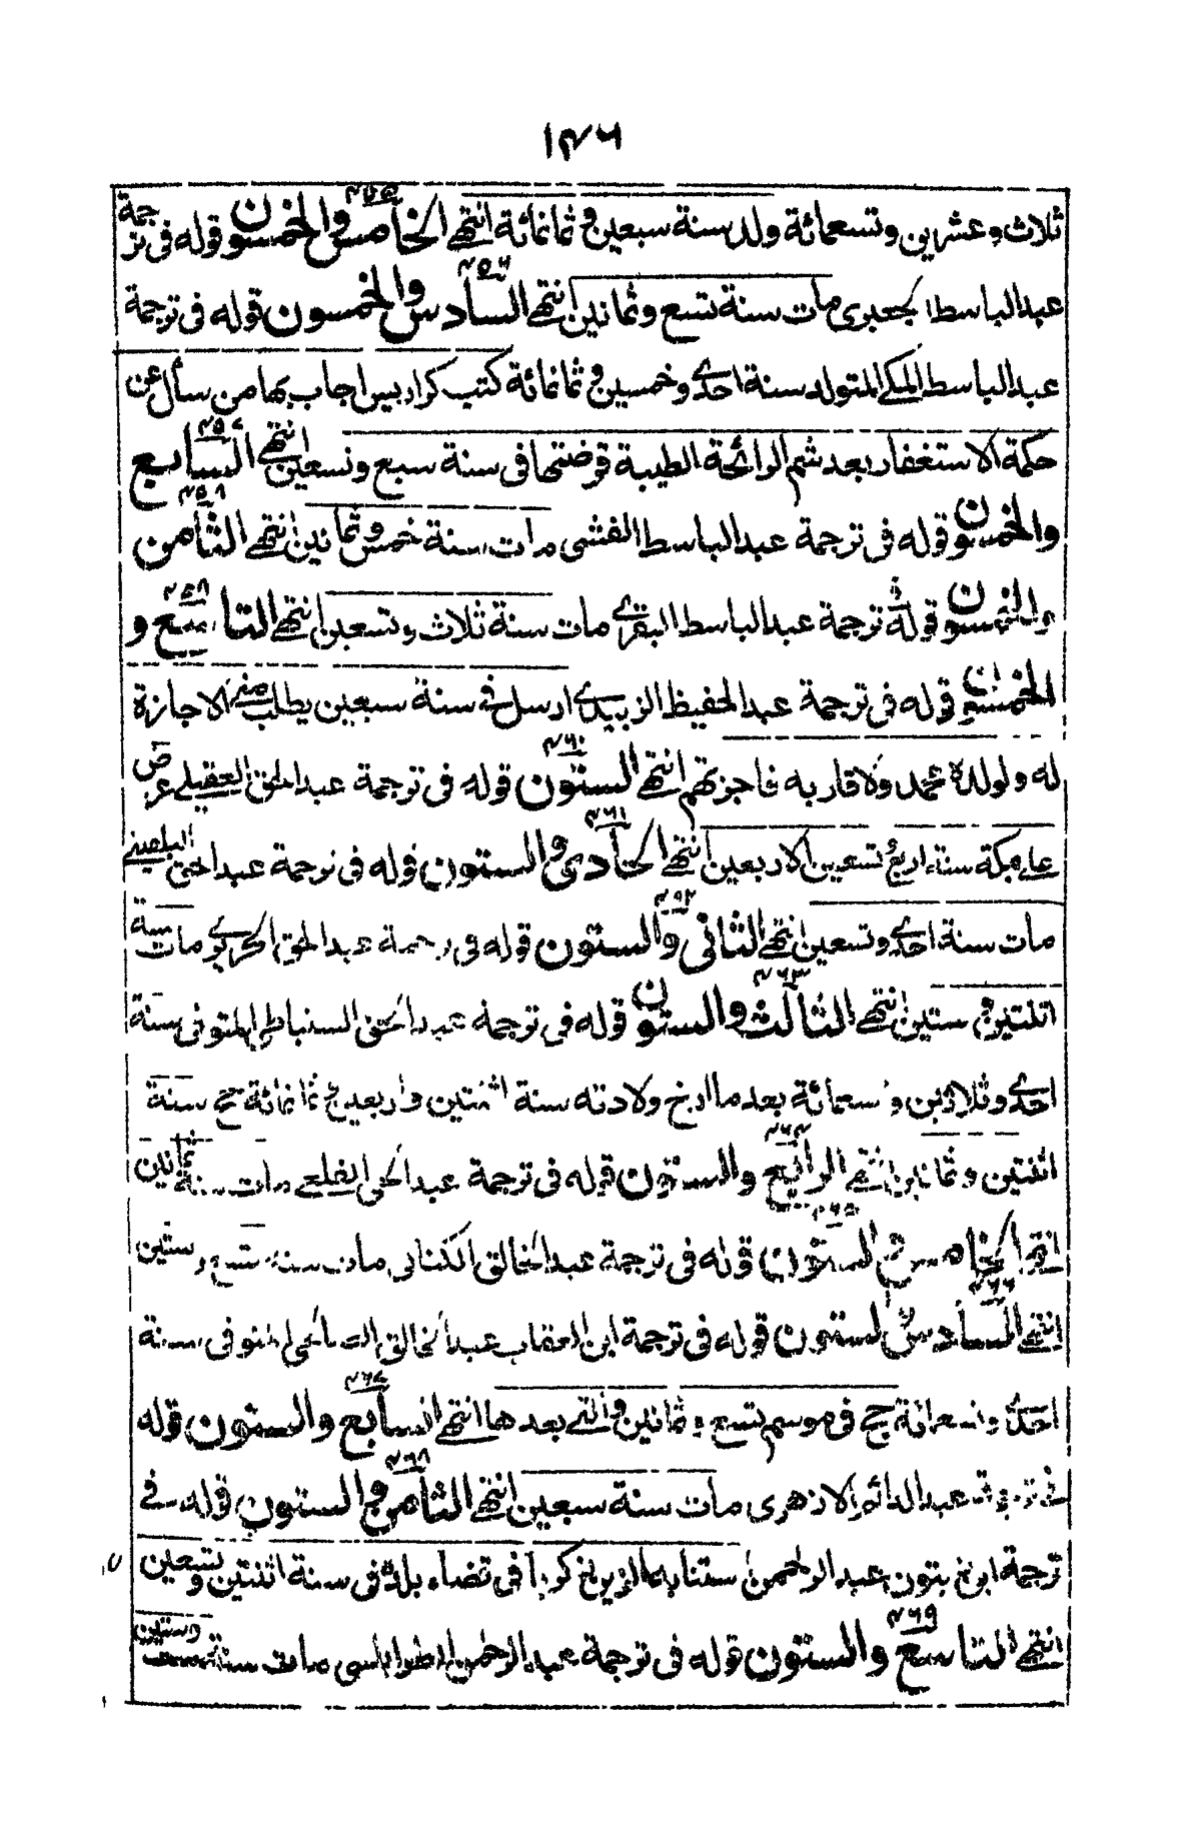 ١٣٦
ثلاث وعشرين وتسعمائة ولد سنة سبعين وثمانمائة انتهى الخامس والخمسون قوله فى ترجمة
عبد الباسط الجعبرى مات سنة تسع وثمانين انتهى السادس والخمسون قوله فى ترجمة
عبد الباسط المكى المتولد سنة احدى وخمسين وثمانمائة كتب كراريس اجاب بها من سأل عن
حكمة الاستغفار بعد شم الرائحة الطيبة قرضتها فى سنة سبع وتسعين انتهى السابع
والخمسون قوله فى ترجمة عبد الباسط الفشنى مات سنة خمس وثمانين انتهى الثامن
والخمسون قوله فى ترجمة عبد الباسط البقرى مات سنة ثلاث وتسعين انتهى التاسع و
الخمسون قوله فى ترجمة عبد الحفيظ الزبيدى ارسل فى سنة سبعين يطلب منى الاجازة
له ولولده محمد ولاقاربه فاجزتهم انتهى الستون قوله فى ترجمة عبد الحق العقيلى عرض
على مكة سنة اربع تسعين الاربعين انتهى الحادى والستون قوله فى ترجمة عبد الحق البلقينى
مات سنة احدى وتسعين انتهى الثانى والستون قوله فى ترجمة عبد الحق مات سنة
اثنتين وستين انتهى الثالث والستون قوله فى ترجمة عبد الحق السنباطى المتوفى سنة
احدى وثلاثين وتسعمائة بعد ما ارخ ولادته سنة اثنتين واربعين وثمانمائة حج سنة
اثنتين وثمانين انتهى الرابع والستون قوله فى ترجمة عبد الحى القلعى مات سنة ثمانين
انتهى الخامس والستون قوله فى ترجمة عبد الخالق الكنانى مات سنة تسع وستين
انتهى السادس والستون قوله فى ترجمة ابن العقاب عبد الخالق الصالحى المتوفى سنة
احدى وتسعمائة حج فى موسم تسع وثمانين والتى بعدها انتهى السابع والستون قوله
فى ترجمة عبد الدائم الازهرى مات سنة سبعين انتهى الثامن والستون قوله فى
ترجمة ابن عبد الرحمن استنابه الزين زكريا فى قضاء بلده فى سنة اثنتين وتسعين
انتهى التاسع والستون قوله فى ترجمة عبد الرحمن الطرابلسى مات سنة وستين